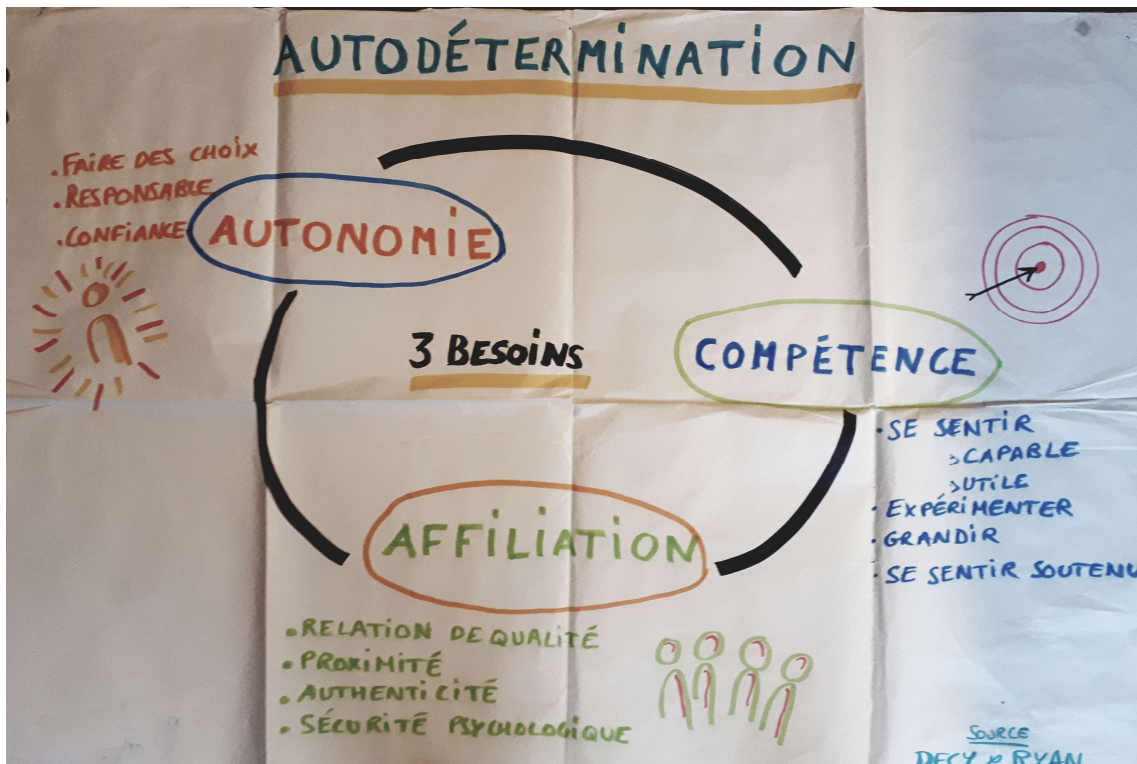 AUTODÉTERMINATION
. FAIRE DES CHOIX
. RESPONSABLE
. CONFIANCE
AUTONOMIE
3 BESOINS
COMPÉTENCE
. SE SENTIR
> CAPABLE
> UTILE
. EXPÉRIMENTER
. GRANDIR
. SE SENTIR SOUTENU
AFFILIATION
. RELATION DE QUALITÉ
. PROXIMITÉ
. AUTHENTICITÉ
. SÉCURITÉ PSYCHOLOGIQUE
SOURCE
DECY & RYAN